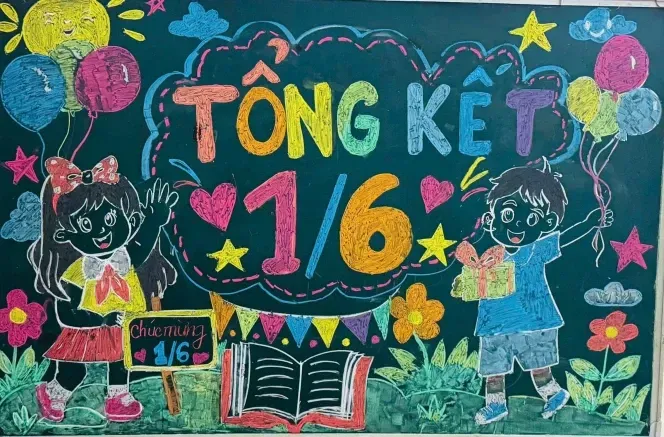 TỔNG KẾT
1/6
Chúc mừng
1/6